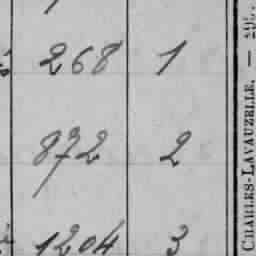 268 1
872 2
1204 3
CHARLES-LAVAUZELLE. —